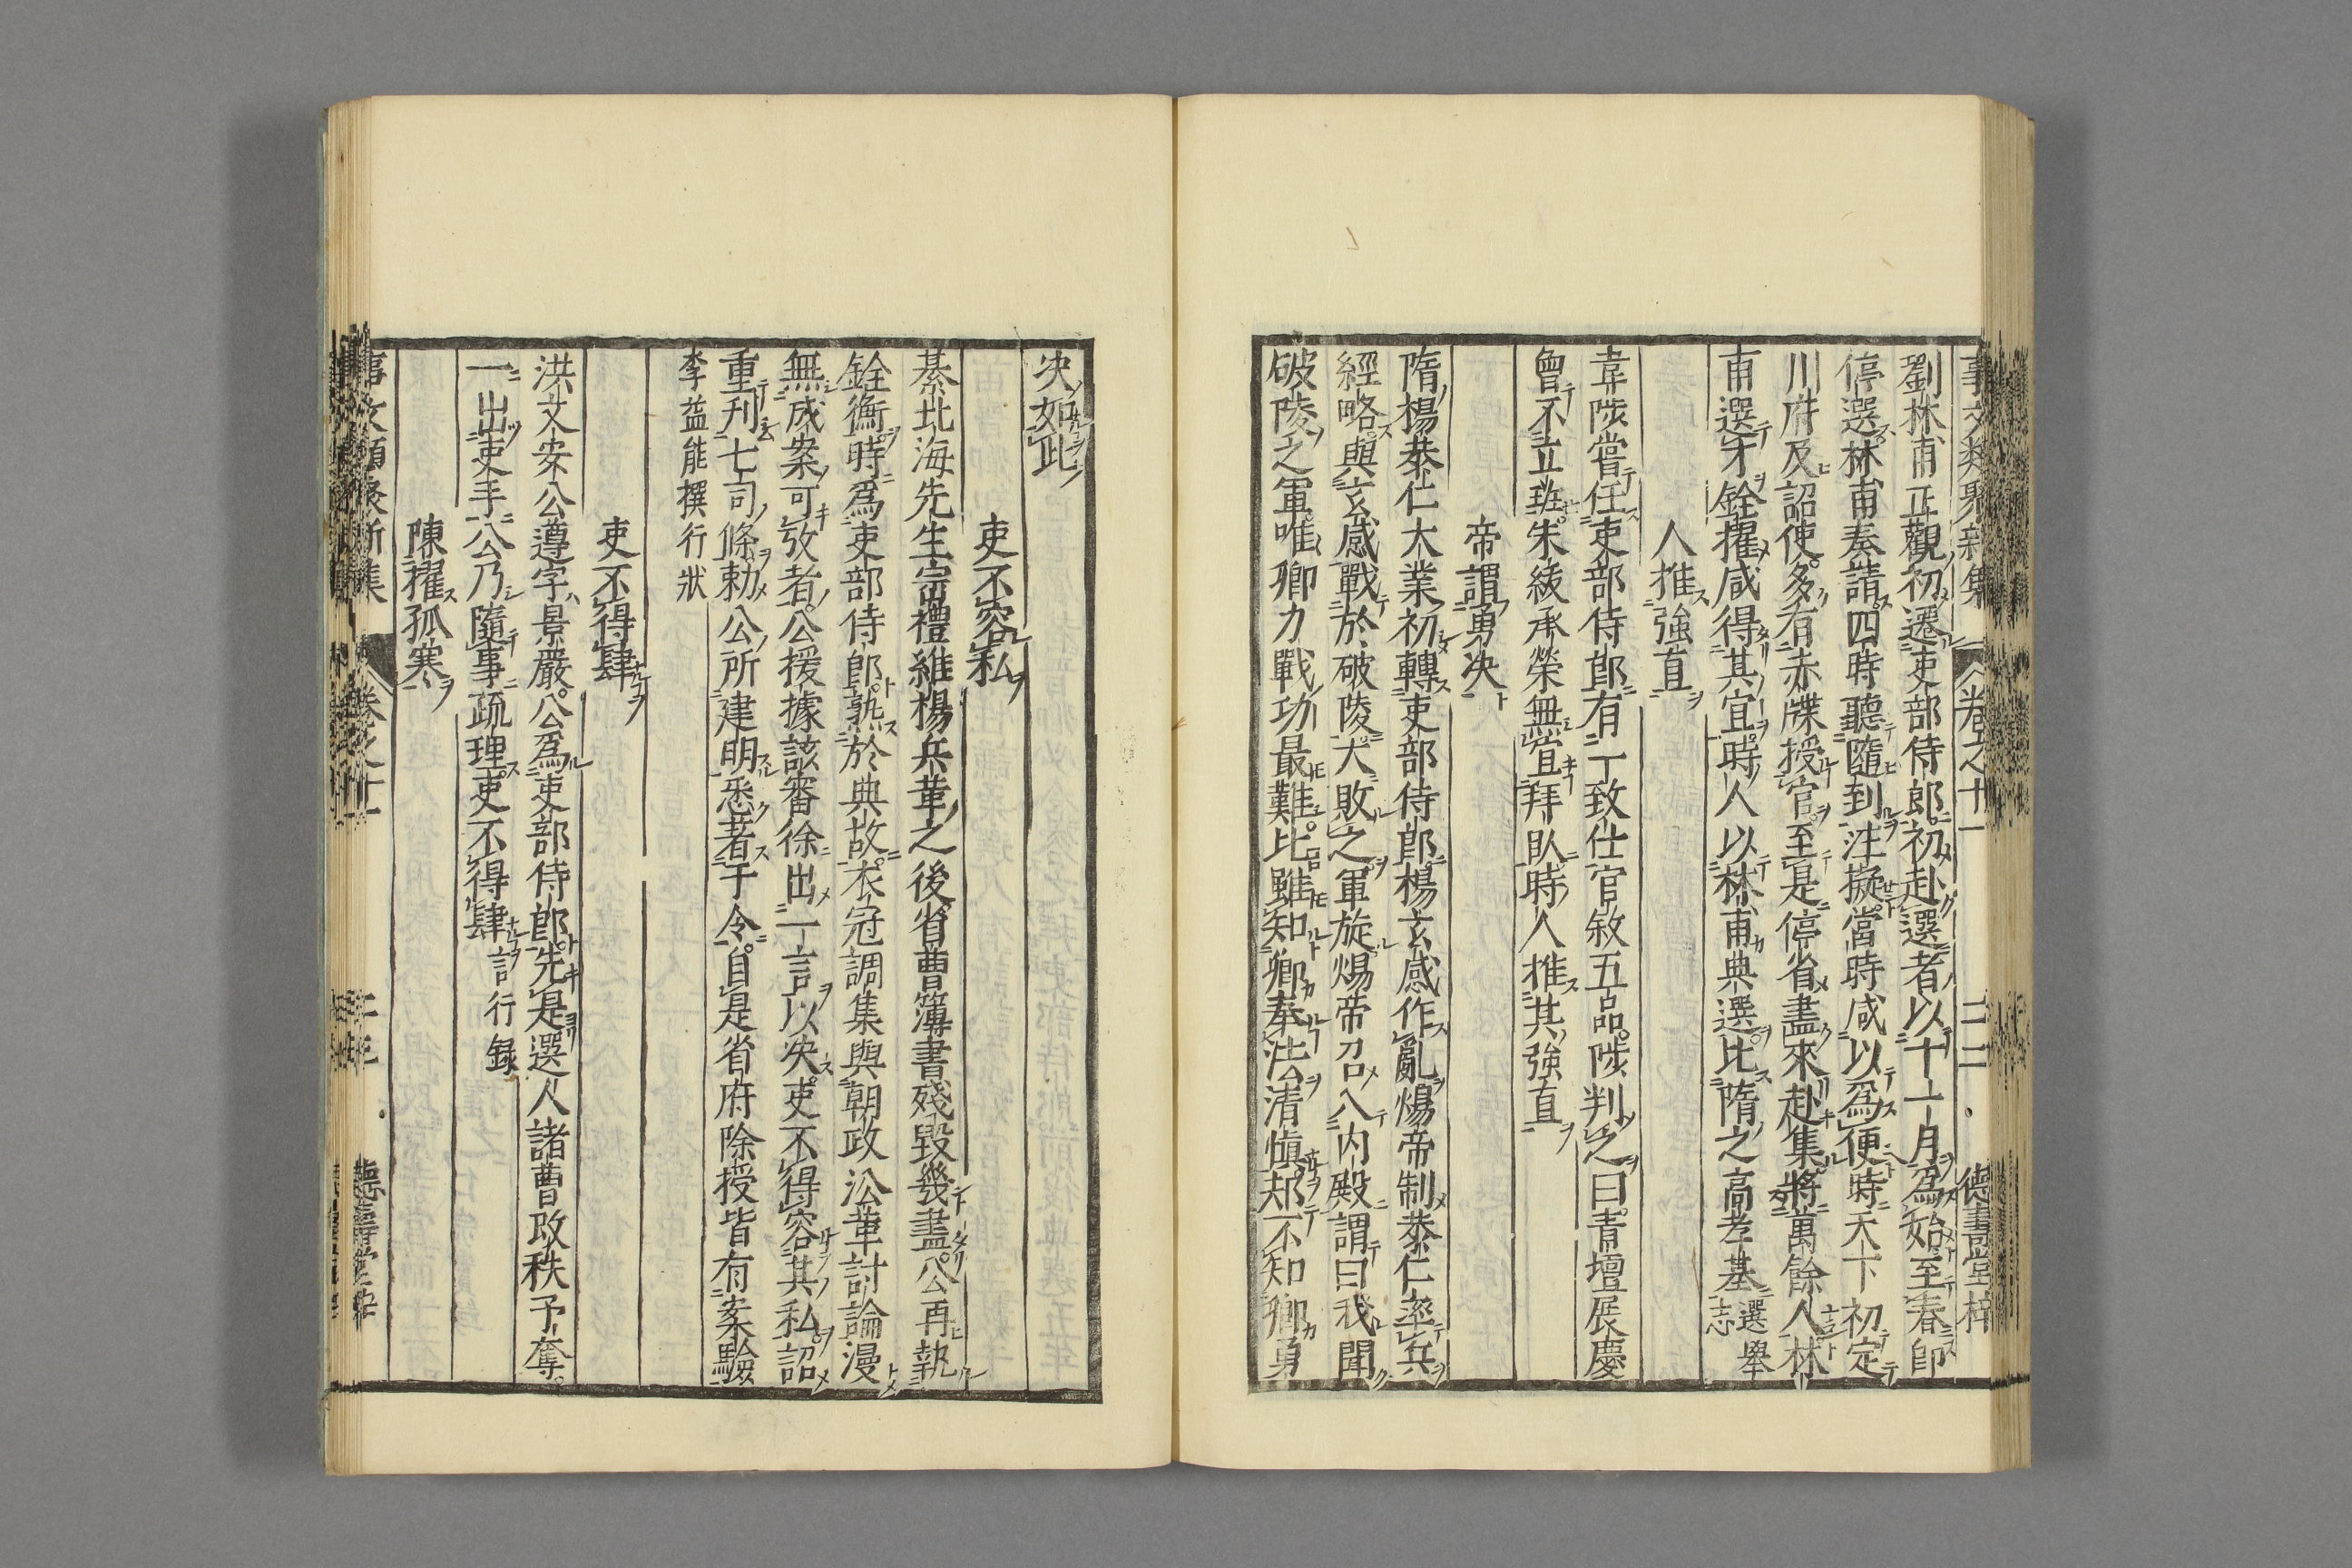 事文類聚新集 卷之十一 二二 德壽堂梓
劉林甫正觀初遷吏部侍郎初赴選者以十一月為始至春即
停選林甫奏請四時聽隨到注擬當時咸以為便時天下初定
川府及詔使多有赤牒授官至是停省盡來赴集將萬餘人林
甫選才銓擢咸得其宜時人以林甫典選比隋之高孝基選舉志
人推強直
韋陟嘗任吏部侍郎有一致仕官敘五品陟判之曰青壇展慶
曾不立班朱綾承榮無宜拜臥時人推其強直
帝謂勇決
隋楊恭仁大業初轉吏部侍郎楊玄感作亂煬帝制恭仁率兵
經略與玄感戰於破陵大敗之軍旋煬帝召入內殿謂曰我聞
破陵之軍唯卿力戰功最難比雖知卿奉法清愼都不知卿勇
決如此
吏不容私
綦北海先生崈禮維楊兵革之後省曹簿書殘毀幾盡公再執
銓衡時為吏部侍郎熟於典故衣冠調集與朝政㳂革討論漫
無成案可攷者公援據該審徐出一言以決吏不得容其私詔
重刋七司條勅公所建明悉著于令自是省府除授皆有案驗
李益能撰行狀
吏不得肆
洪文安公遵字景嚴公為吏部侍郎先是選人諸曹改秩予奪
一出吏手公乃隨事疏理吏不得肆言行録
陳擢孤寒